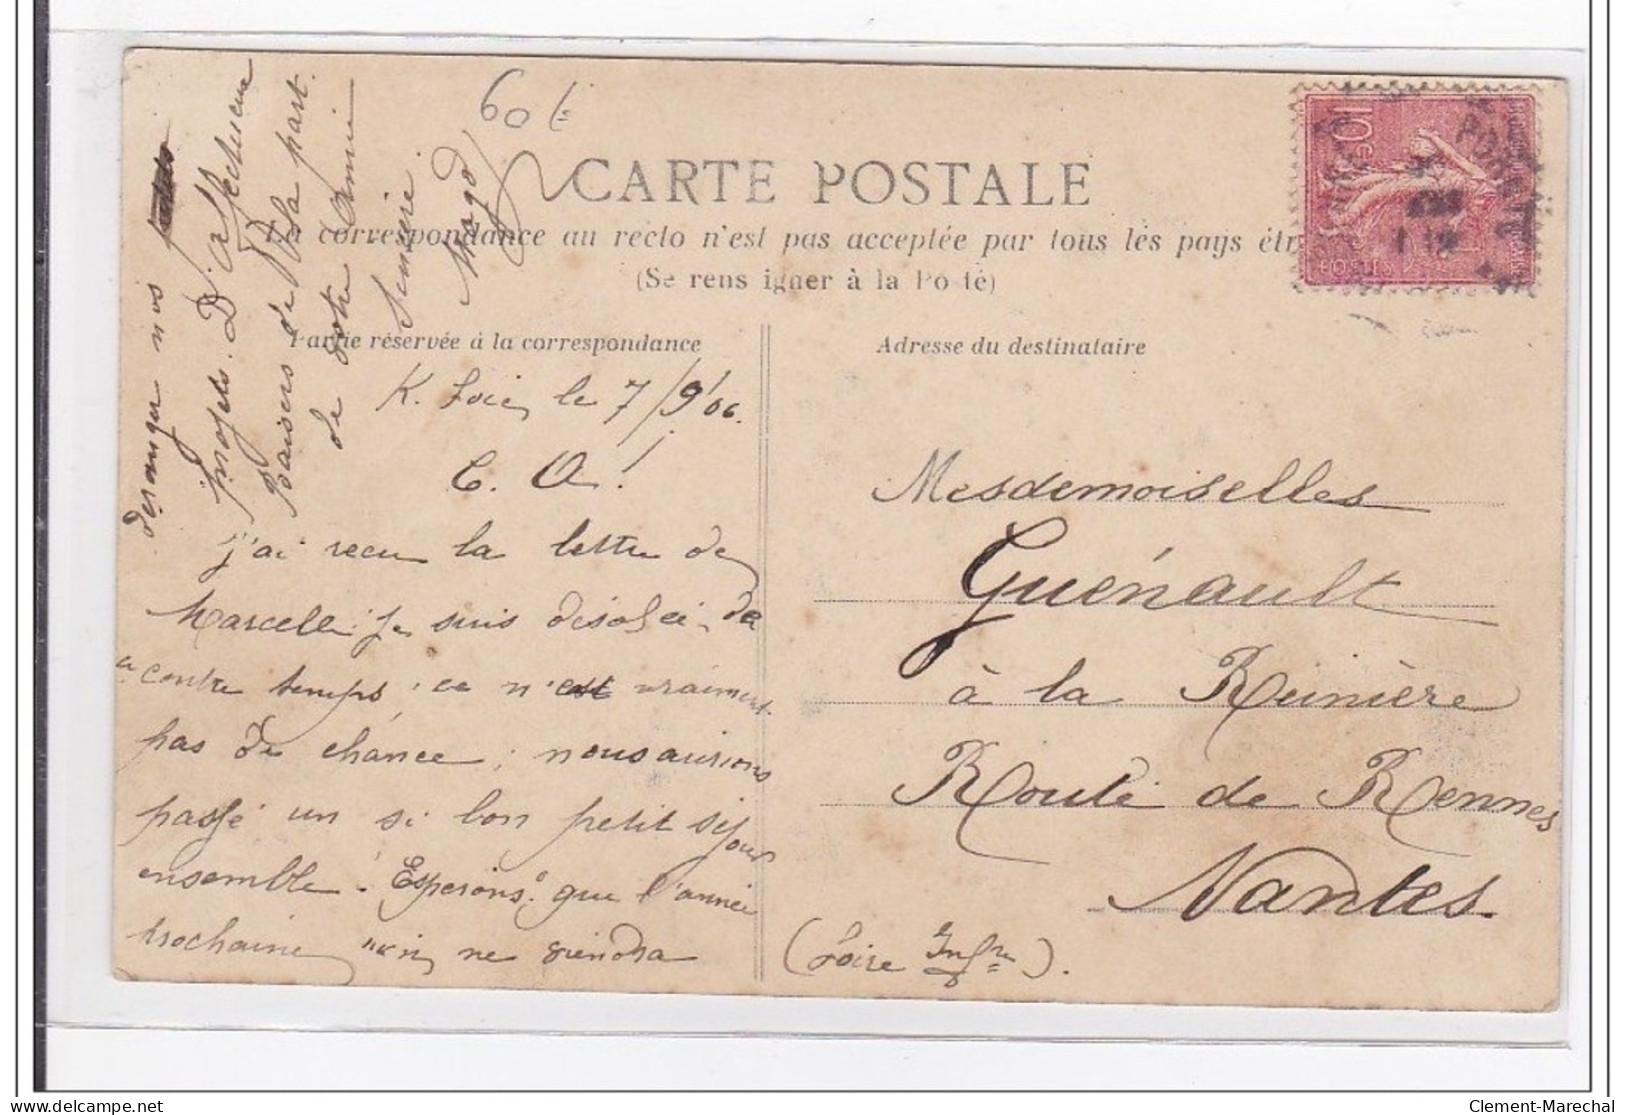 60 f
CARTE POSTALE
La correspondance au recto n'est pas acceptée par tous les pays étr
(Se renseigner à la Poste)
Partie réservée à la correspondance
Adresse du destinataire
le 7/9/06.
C. A!
j'ai recu la lettre de
Marcelle je suis désolée de
contre temps, ce n'est vraiment
pas de chance ; nous aurions
passé un si bon petit séjour
ensemble. Espérons que l'année
prochaine rien ne viendra
déranger nos
projets. D'affectueux
Baisers de la part
de votre amie
Mesdemoiselles
Guénault
à la Reinière
Route de Rennes
Nantes
(Loire Infre).
10c
POSTES
Clement-Marechal